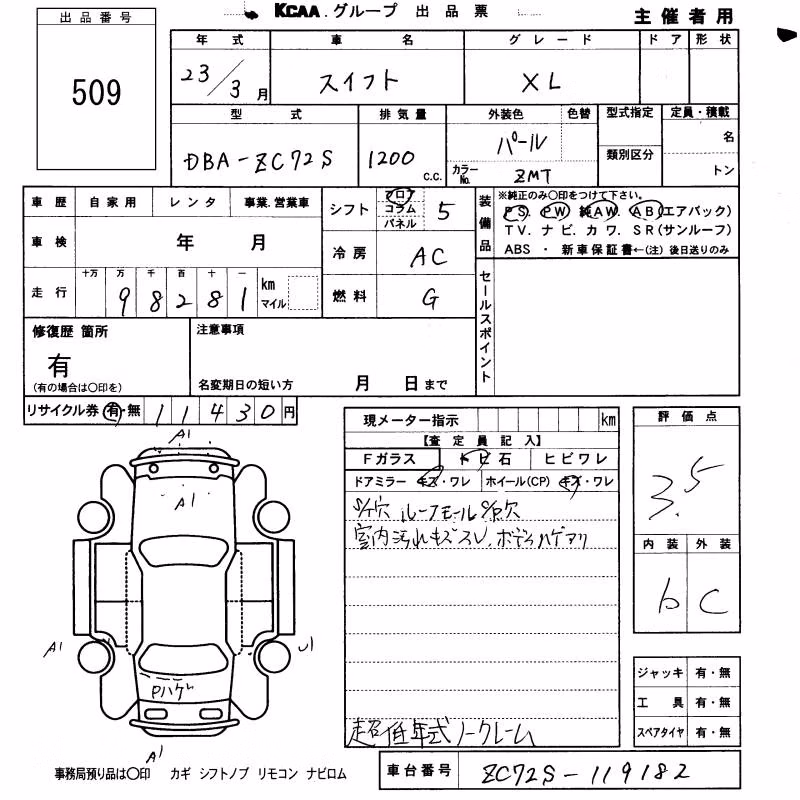 KCAA.グループ 出品票
主催者用
出品番号
509
年式 車名 グレード ドア 形状
23/3月 スイフト XL
型式 排気量 外装色 色替 型式指定 定員・積載
DBA-ZC72S 1200 c.c. パール 名
カラーNo. ZMT 類別区分 トン
車歴 自家用 レンタ 事業.営業車
車検 年 月
走行 十万 万 千 百 十 一
9 8 2 8 1 km マイル
シフト フロア コラム パネル 5
冷房 AC
燃料 G
装備品 ※純正のみ〇印をつけて下さい。
PS. PW 純AW. AB(エアバック)
TV. ナビ. カワ. SR(サンルーフ)
ABS ・ 新車保証書←(注) 後日送りのみ
セールスポイント
修復歴 箇所
有
(有の場合は〇印を)
注意事項
名変期日の短い方 月 日まで
リサイクル券 有・無 11430円
現メーター指示 km
【査定員記入】
Fガラス トビ石 ヒビワレ
ドアミラー キズ・ワレ ホイール(CP) キズ・ワレ
S/穴 ルーフモール
室内汚れキズスレ、ボディハゲアリ
超低年式ノークレーム
評価点
3.5
内装 外装
b C
ジャッキ 有・無
工具 有・無
スペアタイヤ 有・無
A1
A1
A1
U1
Pハゲ
A1
事務局預り品は〇印 カギ シフトノブ リモコン ナビロム
車台番号 ZC72S-119182